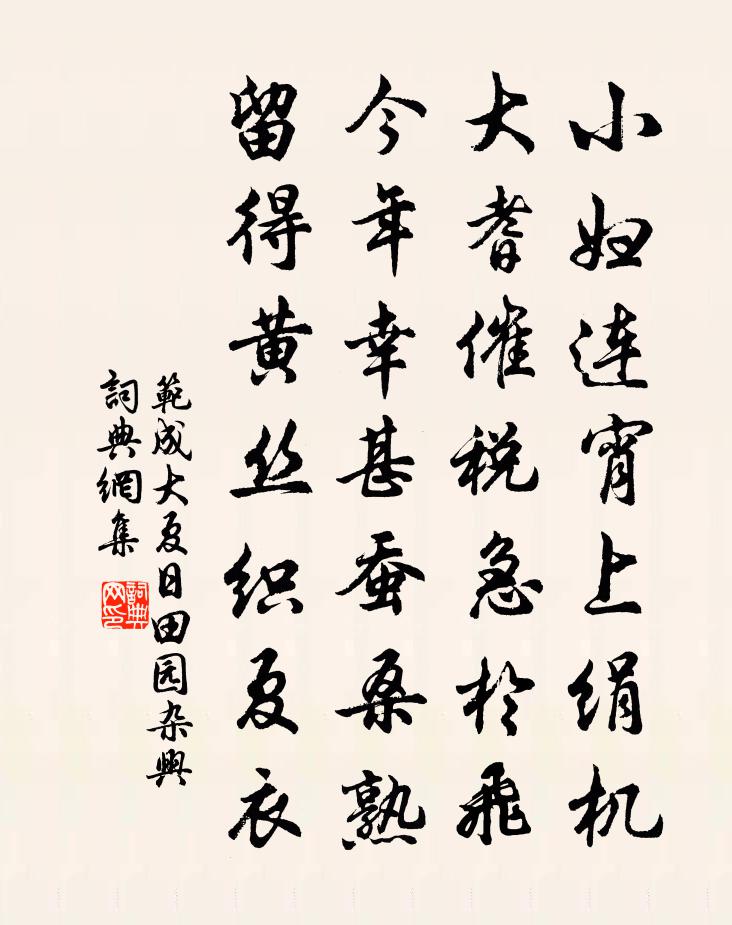 小妇连宵上绢机
大耆催税急於飛
今年幸甚蚕桑熟
留得黄丝织夏衣
範成大夏日田园杂興
詞典網集
詞典网印